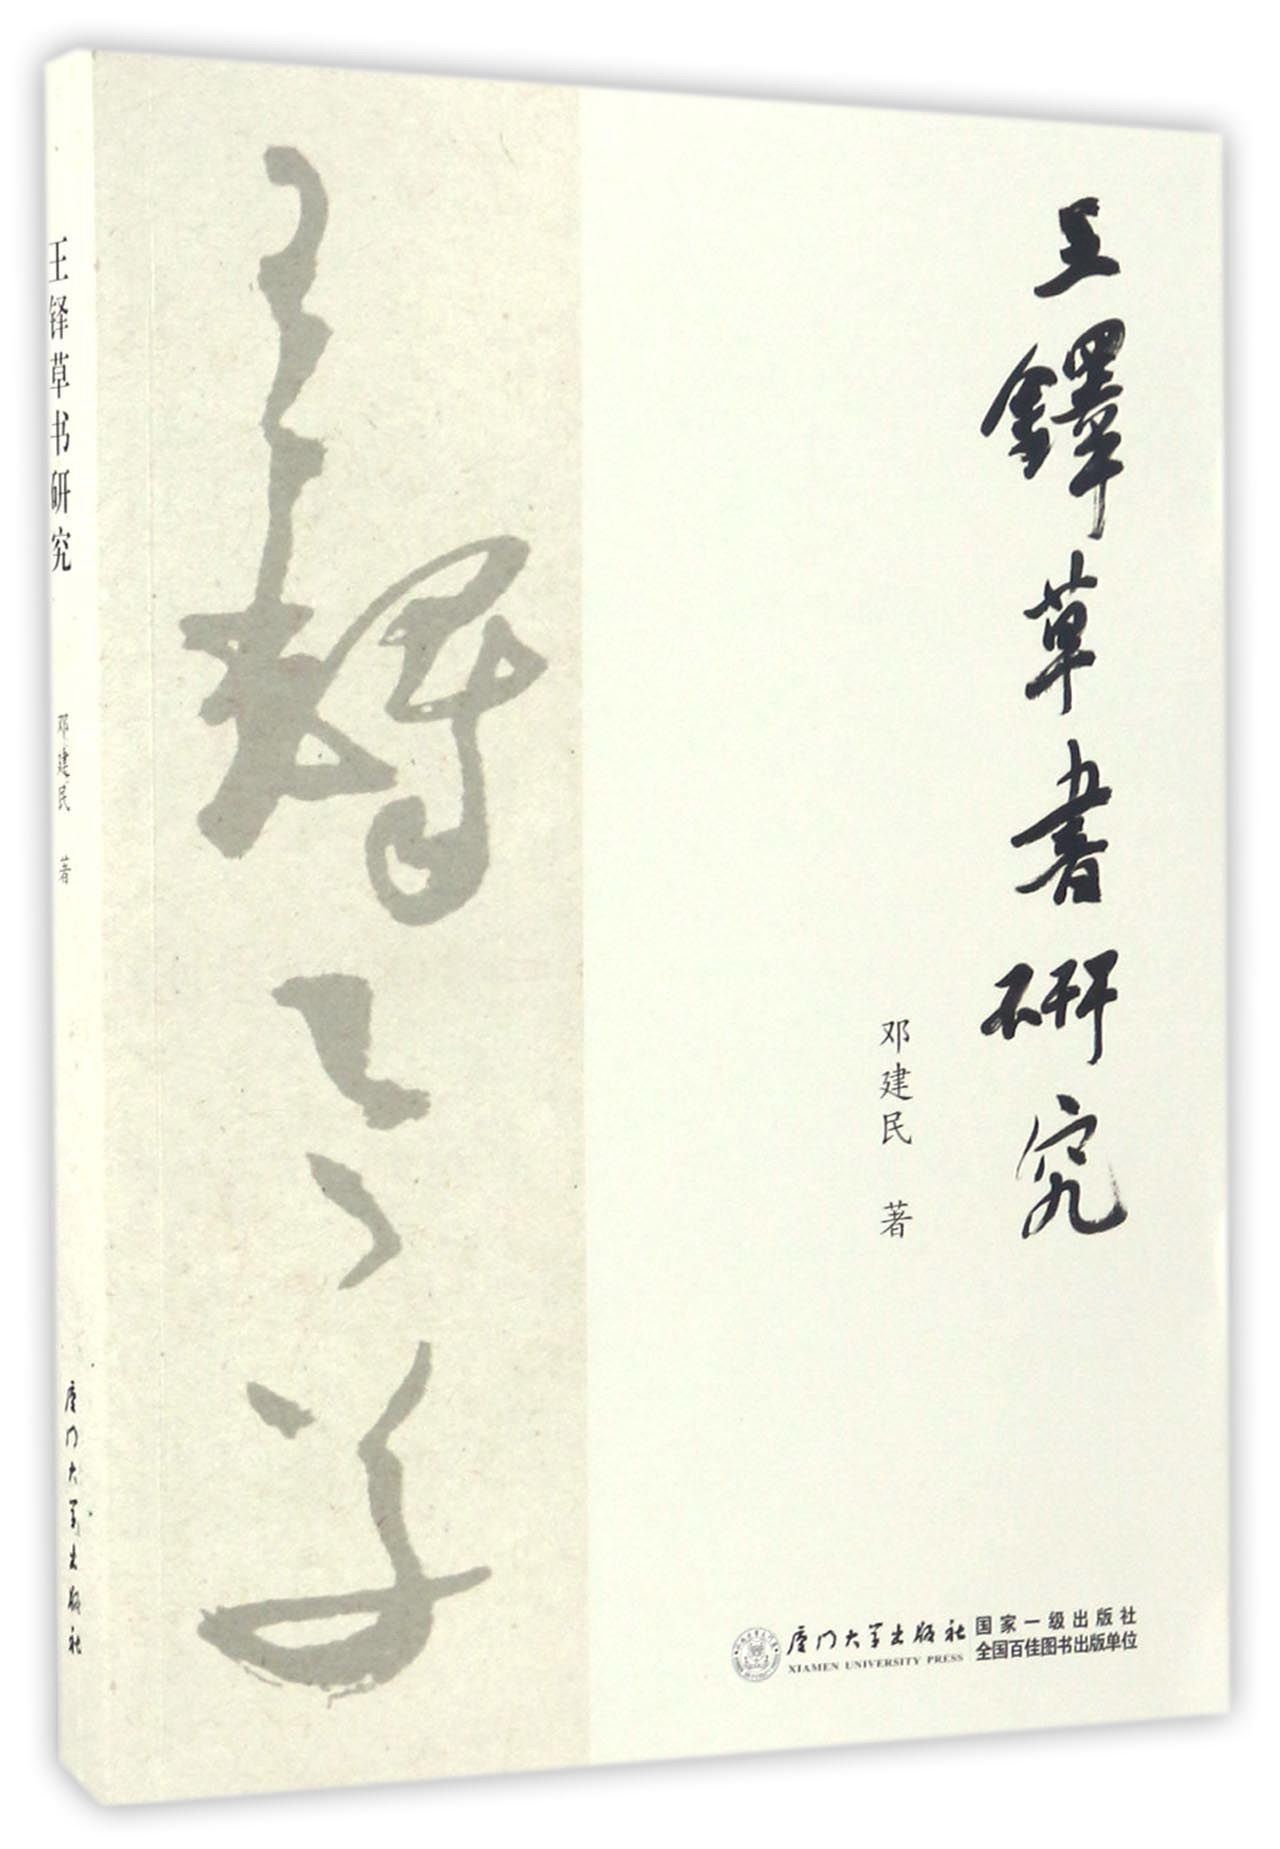 王铎草书研究
邓建民 著
厦门大学出版社
王鐸草書研究
邓建民 著
厦门大学出版社
XIAMEN UNIVERSITY PRESS
国家一级出版社
全国百佳图书出版单位